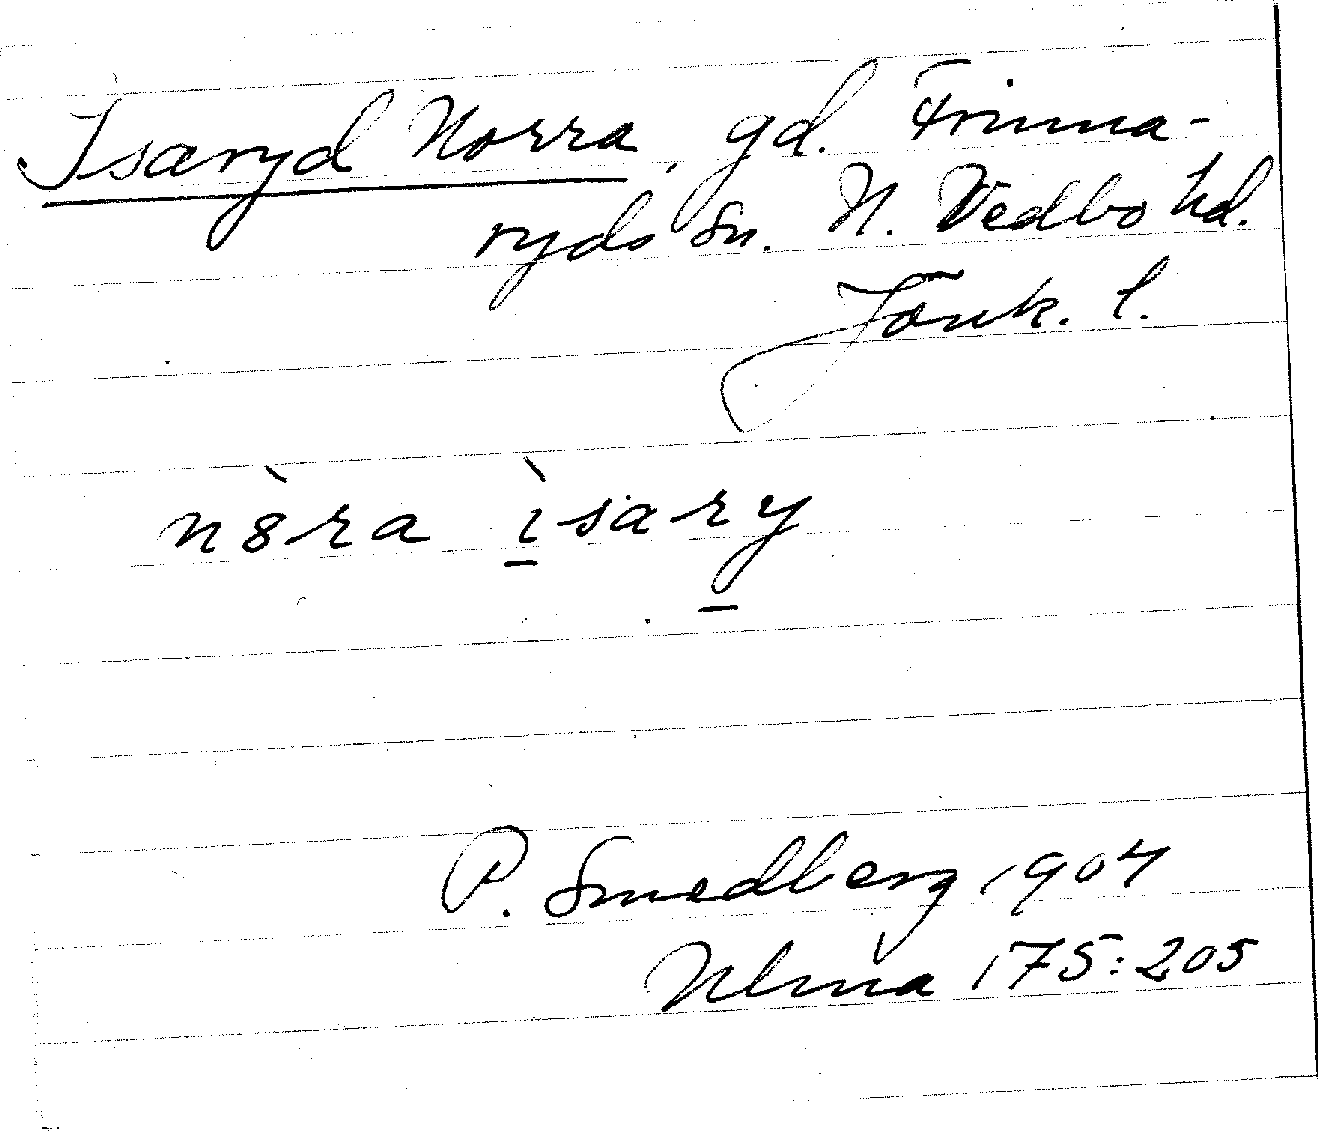 Isaryd Norra, gd. Frinna-
ryds sn. N. Vedbo hd.
Jönk. l.
n8̀ra ı̱̀sary̱
P. Smedberg 1904
Ulma 175:205